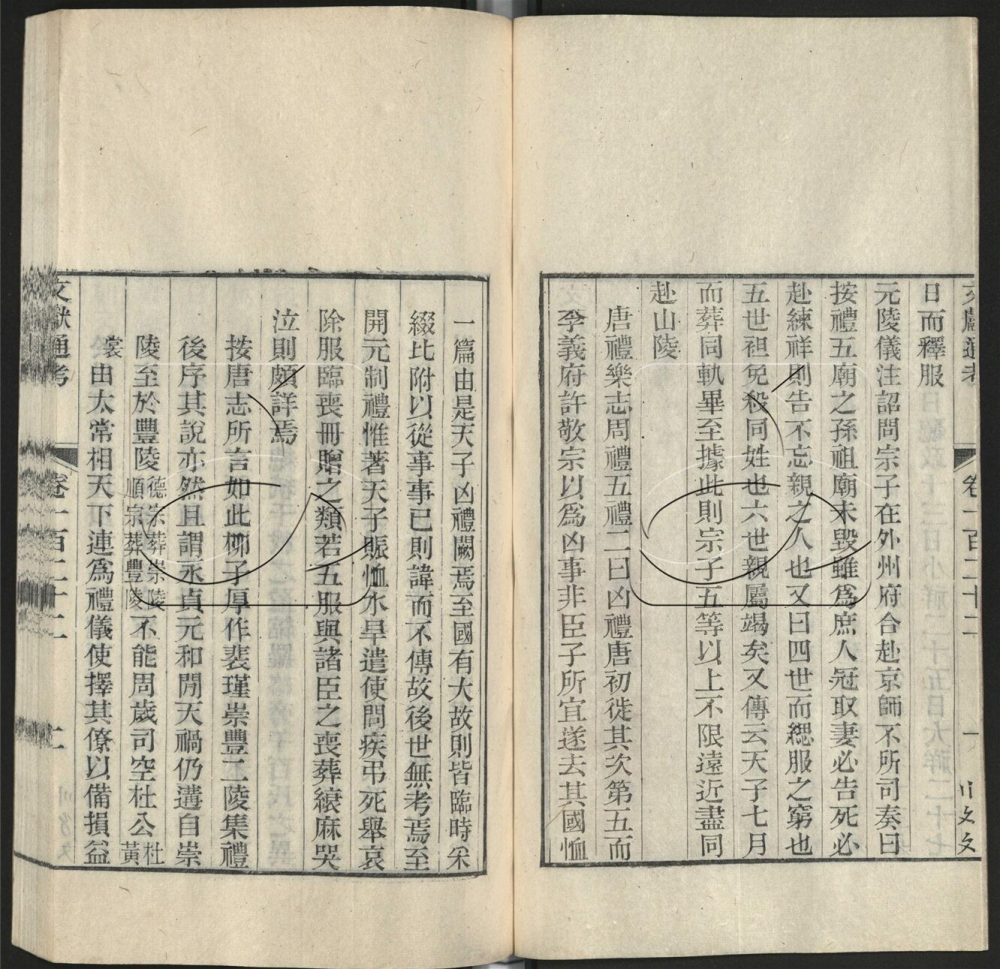 文獻通考 卷一百二十二 一
日而釋服
元陵儀注詔問宗子在外州府合赴京師不所司奏曰
按禮五廟之孫祖廟未毀雖爲庶人冠取妻必告死必
赴練祥則告不忘親之人也又曰四世而緦服之窮也
五世袒免殺同姓也六世親屬竭矣又傳云天子七月
而葬同軌畢至據此則宗子五等以上不限遠近盡同
赴山陵
唐禮樂志周禮五禮二曰凶禮唐初徙其次第五而
李義府許敬宗以爲凶事非臣子所宜遂去其國恤
一篇由是天子凶禮闕焉至國有大故則皆臨時采
綴比附以從事事已則諱而不傳故後世無考焉至
開元制禮惟著天子賑恤水旱遣使問疾弔死舉哀
除服臨喪冊贈之類若五服與諸臣之喪葬縗麻哭
泣則頗詳焉
按唐志所言如此柳子厚作裴瑾崇豐二陵集禮
後序其說亦然且謂永貞元和閒天禍仍遘自崇
陵至於豐陵德宗葬崇陵順宗葬豐陵不能周歲司空杜公杜黃
裳由太常相天下連爲禮儀使擇其僚以備損益
文獻通考 卷一百二十二 二